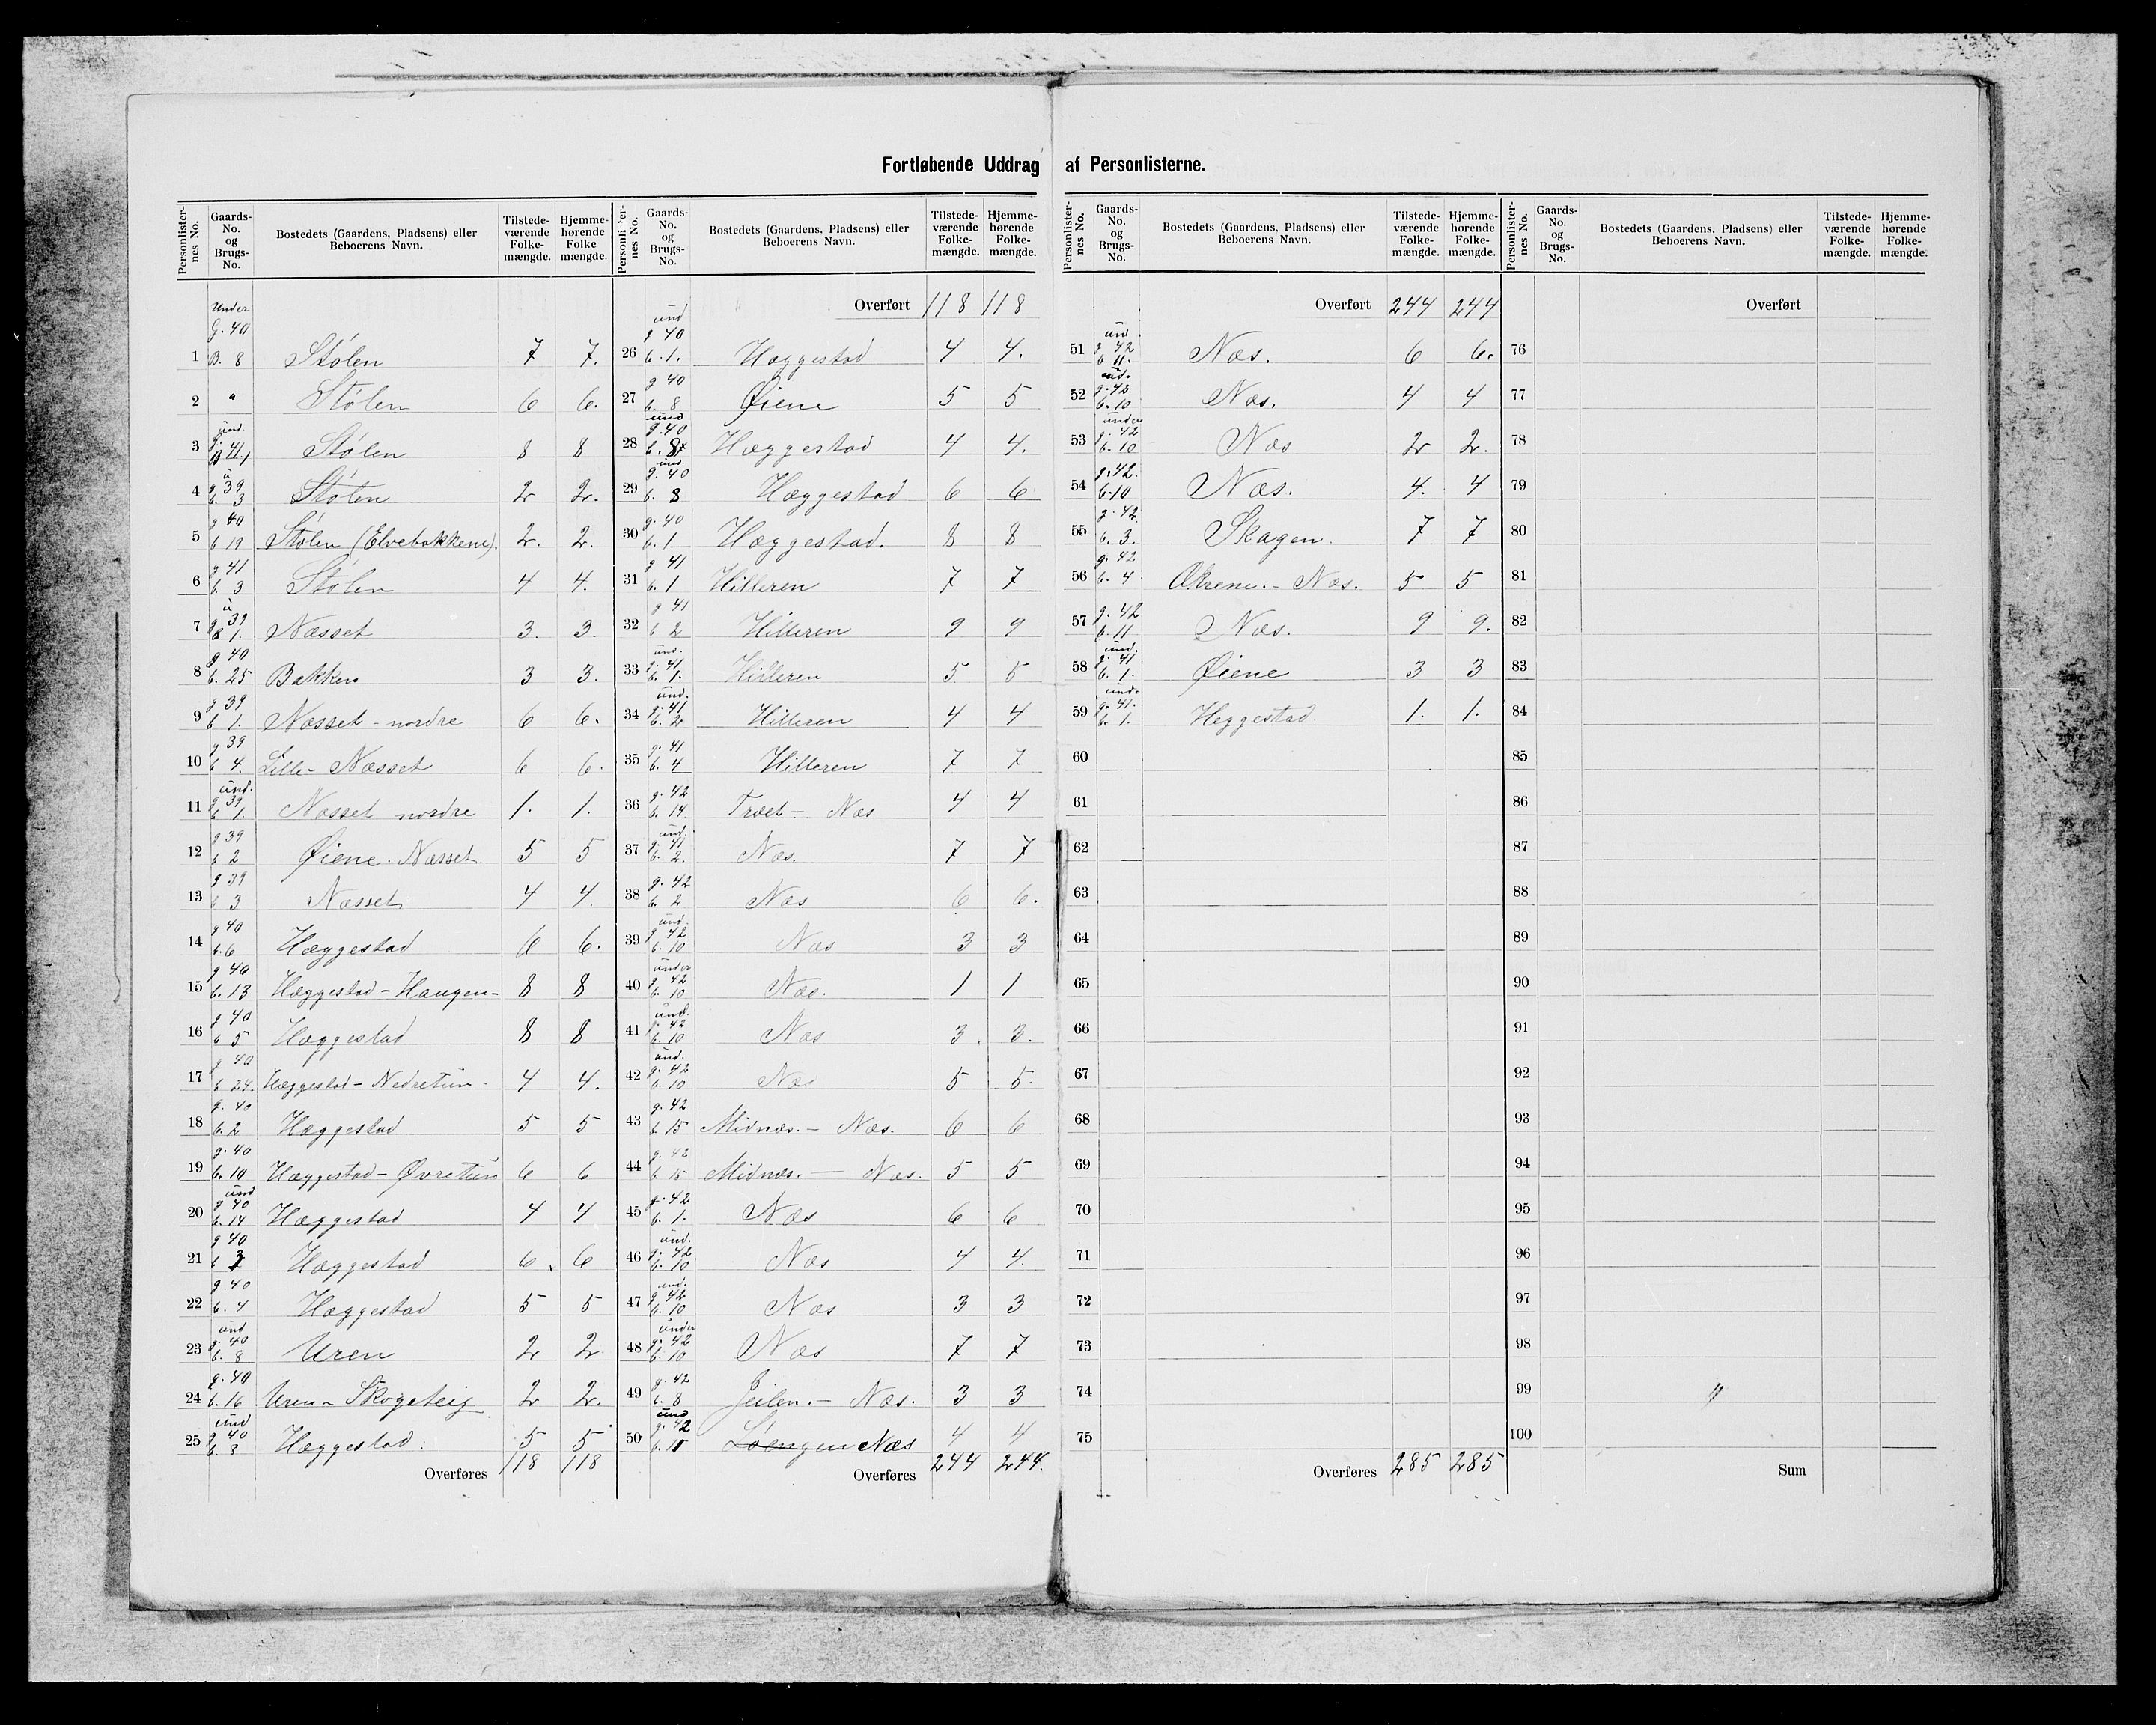 Fortløbende Uddrag af Personlisterne.
Personlister-nes No. Gaards-No. og Brugs-No. Bostedets (Gaardens, Pladsens) eller Beboerens Navn. Tilstede-værende Folke-mængde. Hjemme-hørende Folke mængde.
Under G. 40
1 B. 8 Stølen 7 7.
2 " Stølen 6 6.
3 und. g. 41 B 1 Stølen 8 8
4 u g 39 b. 3 Stølen 2 2.
5 g 40 b 19 Stølen (Elvebakkene). 2. 2.
6 g 41 b. 3 Stølen 4 4.
7 u g 39 B 1. Næsset 3. 3.
8 g 40 b. 25 Bakken 3 3.
9 g 39 b 1. Næsset - nordre 6 6.
10 g 39 b 4. Lille - Næsset 6 6.
11 und. g 39 b 1. Næsset nordre 1. 1.
12 g 39 b 2 Øiene. Næsset. 5 5
13 g 39 b 3 Næsset 4 4.
14 g 40 b. 6 Hæggestad 6 6.
15 g 40 b. 13 Hæggestad - Haugen - 8 8
16 g 40 b 5 Hæggestad 8 8
17 g 40 b 24. Hæggestad - Nedretun - 4 4.
18 g. 40 b. 2 Hæggestad 5 5
19 g. 40 b. 10 Hæggestad - Øvretun 6 6
20 und g 40 b. 14 Hæggestad 4 4
21 g 40 b 3 Hæggestad 6. 6
22 g. 40 b. 4 Hæggestad 5 5
23 und g. 40 b. 8 Uren 2 2
24 g. 40 b. 16 Uren - Skogateig 2 2.
25 und g 40 b. 8 Hæggestad. 5 5
Overføres 118 118
Personlister-nes No. Gaards-No. og Brugs-No. Bostedets (Gaardens, Pladsens) eller Beboerens Navn. Tilstede-værende Folke-mængde. Hjemme-hørende Folke-mængde.
Overført 118 118
26 und g 40 b. 1. Hæggestad 4 4.
27 g 40 b. 8 Øiene 5 5
28 und g. 40 b. 8 Hæggestad 4 4.
29 und. g. 40 b. 8 Hæggestad 6 6
30 g. 40 b. 1 Hæggestad. 8 8
31 g 41 b. 1 Hilleren 7 7
32 g 41 b 2 Hilleren 9 9
33 und. g. 41 b. 1. Hilleren 5 5
34 und. g. 41 b. 2 Hilleren 4 4
35 g. 41 b. 4 Hilleren 7 7
36 g. 42 b. 14 Træet - Næs 4 4
37 und. g. 41 b. 2. Næs. 7 7
38 g. 42 b. 2 Næs 6 6.
39 und. g 42 b. 10 Næs 3 3
40 under g. 42 b. 10 Næs. 1 1
41 und. g. 42 b. 10 Næs 3. 3.
42 und. g. 42 b. 10 Næs 5 5.
43 g. 42 b. 15 Midnæs. - Næs. 6 6
44 g. 42 b. 15 Midnæs. - Næs. 5 5
45 g. 42 b. 1. Næs 6 6
46 und. g. 42 b. 10 Næs 4 4.
47 und. g 42 b. 10 Næs 3 3
48 under g. 42 b. 10 Næs 7 7
49 g. 42 b. 8 Jeilen. - Næs. 3 3
50 und g. 42 b. 11 Løengen Næs 4 4
Overføres 244 244.
Personlister-nes No. Gaards-No. og Brugs-No. Bostedets (Gaardens, Pladsens) eller Beboerens Navn. Tilstede-værende Folke-mængde. Hjemme-hørende Folke-mængde.
Overført 244 244
51 und g 42 b 11. Næs. 6 6.
52 und. g. 42 b. 10 Næs. 4 4
53 under g. 42 b. 10 Næs 2 2.
54 g. 42. b. 10 Næs. 4. 4
55 g. 42. b. 3. Skagen. 7 7
56 g. 42 b. 4. Økrene. - Næs. 5 5
57 g. 42 b. 11 Næs. 9 9.
58 und. g. 41 b. 1. Øiene 3 3
59 und. g. 41. b. 1. Heggestad. 1. 1.
60
61
62
63
64
65
66
67
68
69
70
71
72
73
74
75
Overføres 285 285
Personlister-nes No. Gaards-No. og Brugs-No. Bostedets (Gaardens, Pladsens) eller Beboerens Navn. Tilstede-værende Folke-mængde. Hjemme-hørende Folke-mængde.
Overført
76
77
78
79
80
81
82
83
84
85
86
87
88
89
90
91
92
93
94
95
96
97
98
99
100
Sum